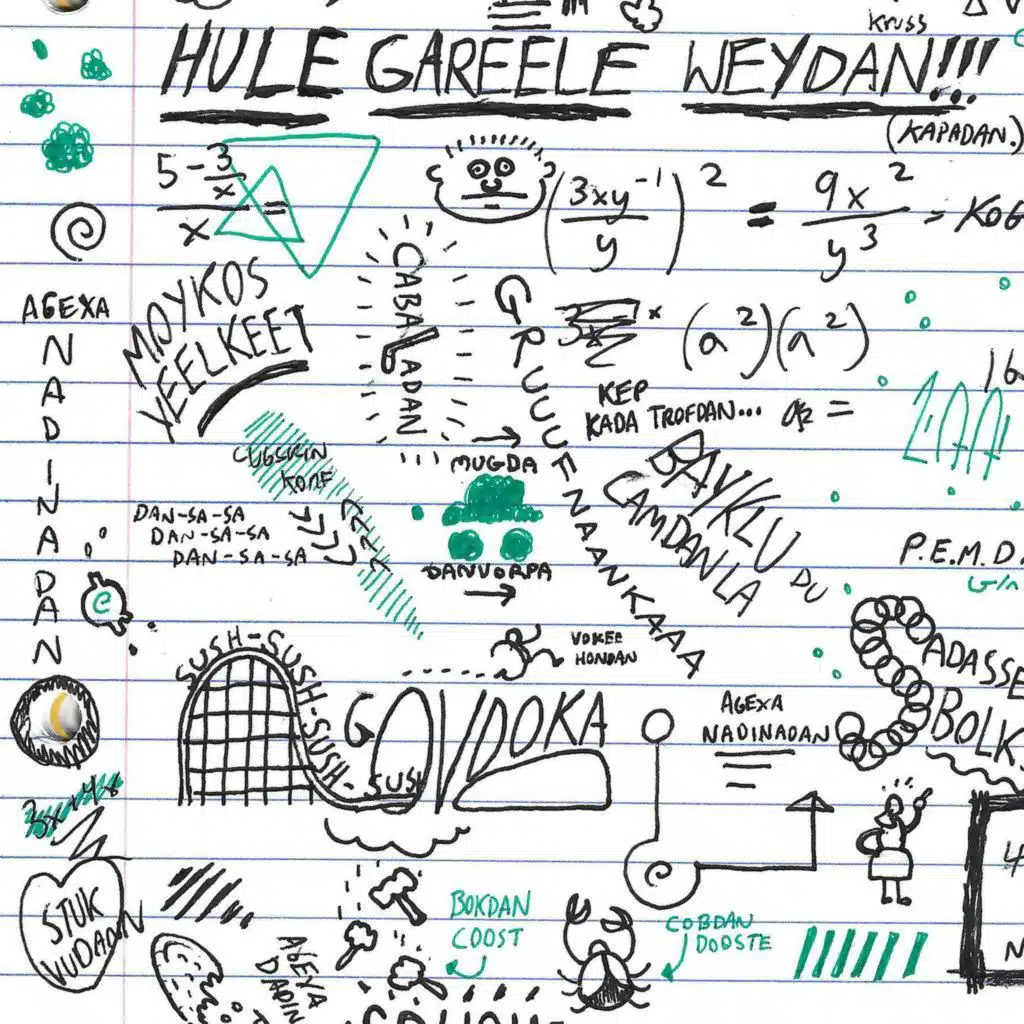 KRUSS
HULE GAREELE WEYDAN!!!
(KAPADAN.)
5 - 3/x
x
=
(3xy⁻¹ / y)² = 9x² / y³ = KOG
AGEXA
NADINADAN
MOYKOS
YEELKEET
CABALADAN
GRUUUFNAANKAAA
(a²)(a²)
KEP
KADA TROFDAN...
=
16
BAYKLU
CAMDANLA
DU
MUGDA
DANVORPA
KOME
DAN-SA-SA
DAN-SA-SA
DAN-SA-SA
P.E.M.D.
e
VOKEE
HONDAN
SUSH-SUSH-SUSH-SUSH-SUSH
GOVDOKA
AGEXA
NADINADAN
SADASSE
BOLK
3x + 4x
STUK
VUDAAN
AGEXA
DADIN
BOKDAN
COOST
COBDAN
DOOSTE
4
N